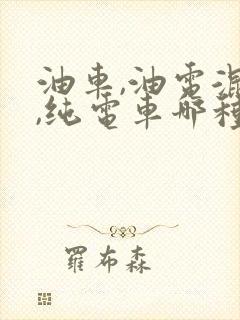 油車,油電
,純電車哪種
羅布森